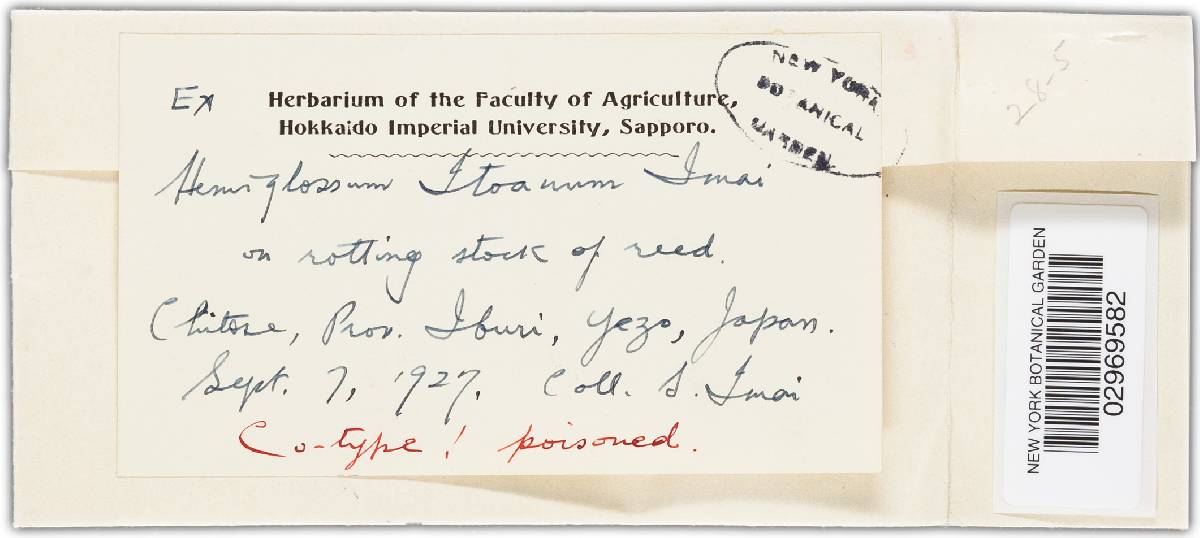 Ex Herbarium of the Faculty of Agriculture,
Hokkaido Imperial University, Sapporo.
NEW YORK
BOTANICAL
GARDEN
Hemiglossum Itoanum Imai
on rotting stock of reed.
Chitose, Prov. Iburi, Yezo, Japan.
Sept. 7, 1927. Coll. S. Imai
Co-type! poisoned.
28-5
NEW YORK BOTANICAL GARDEN
02969582